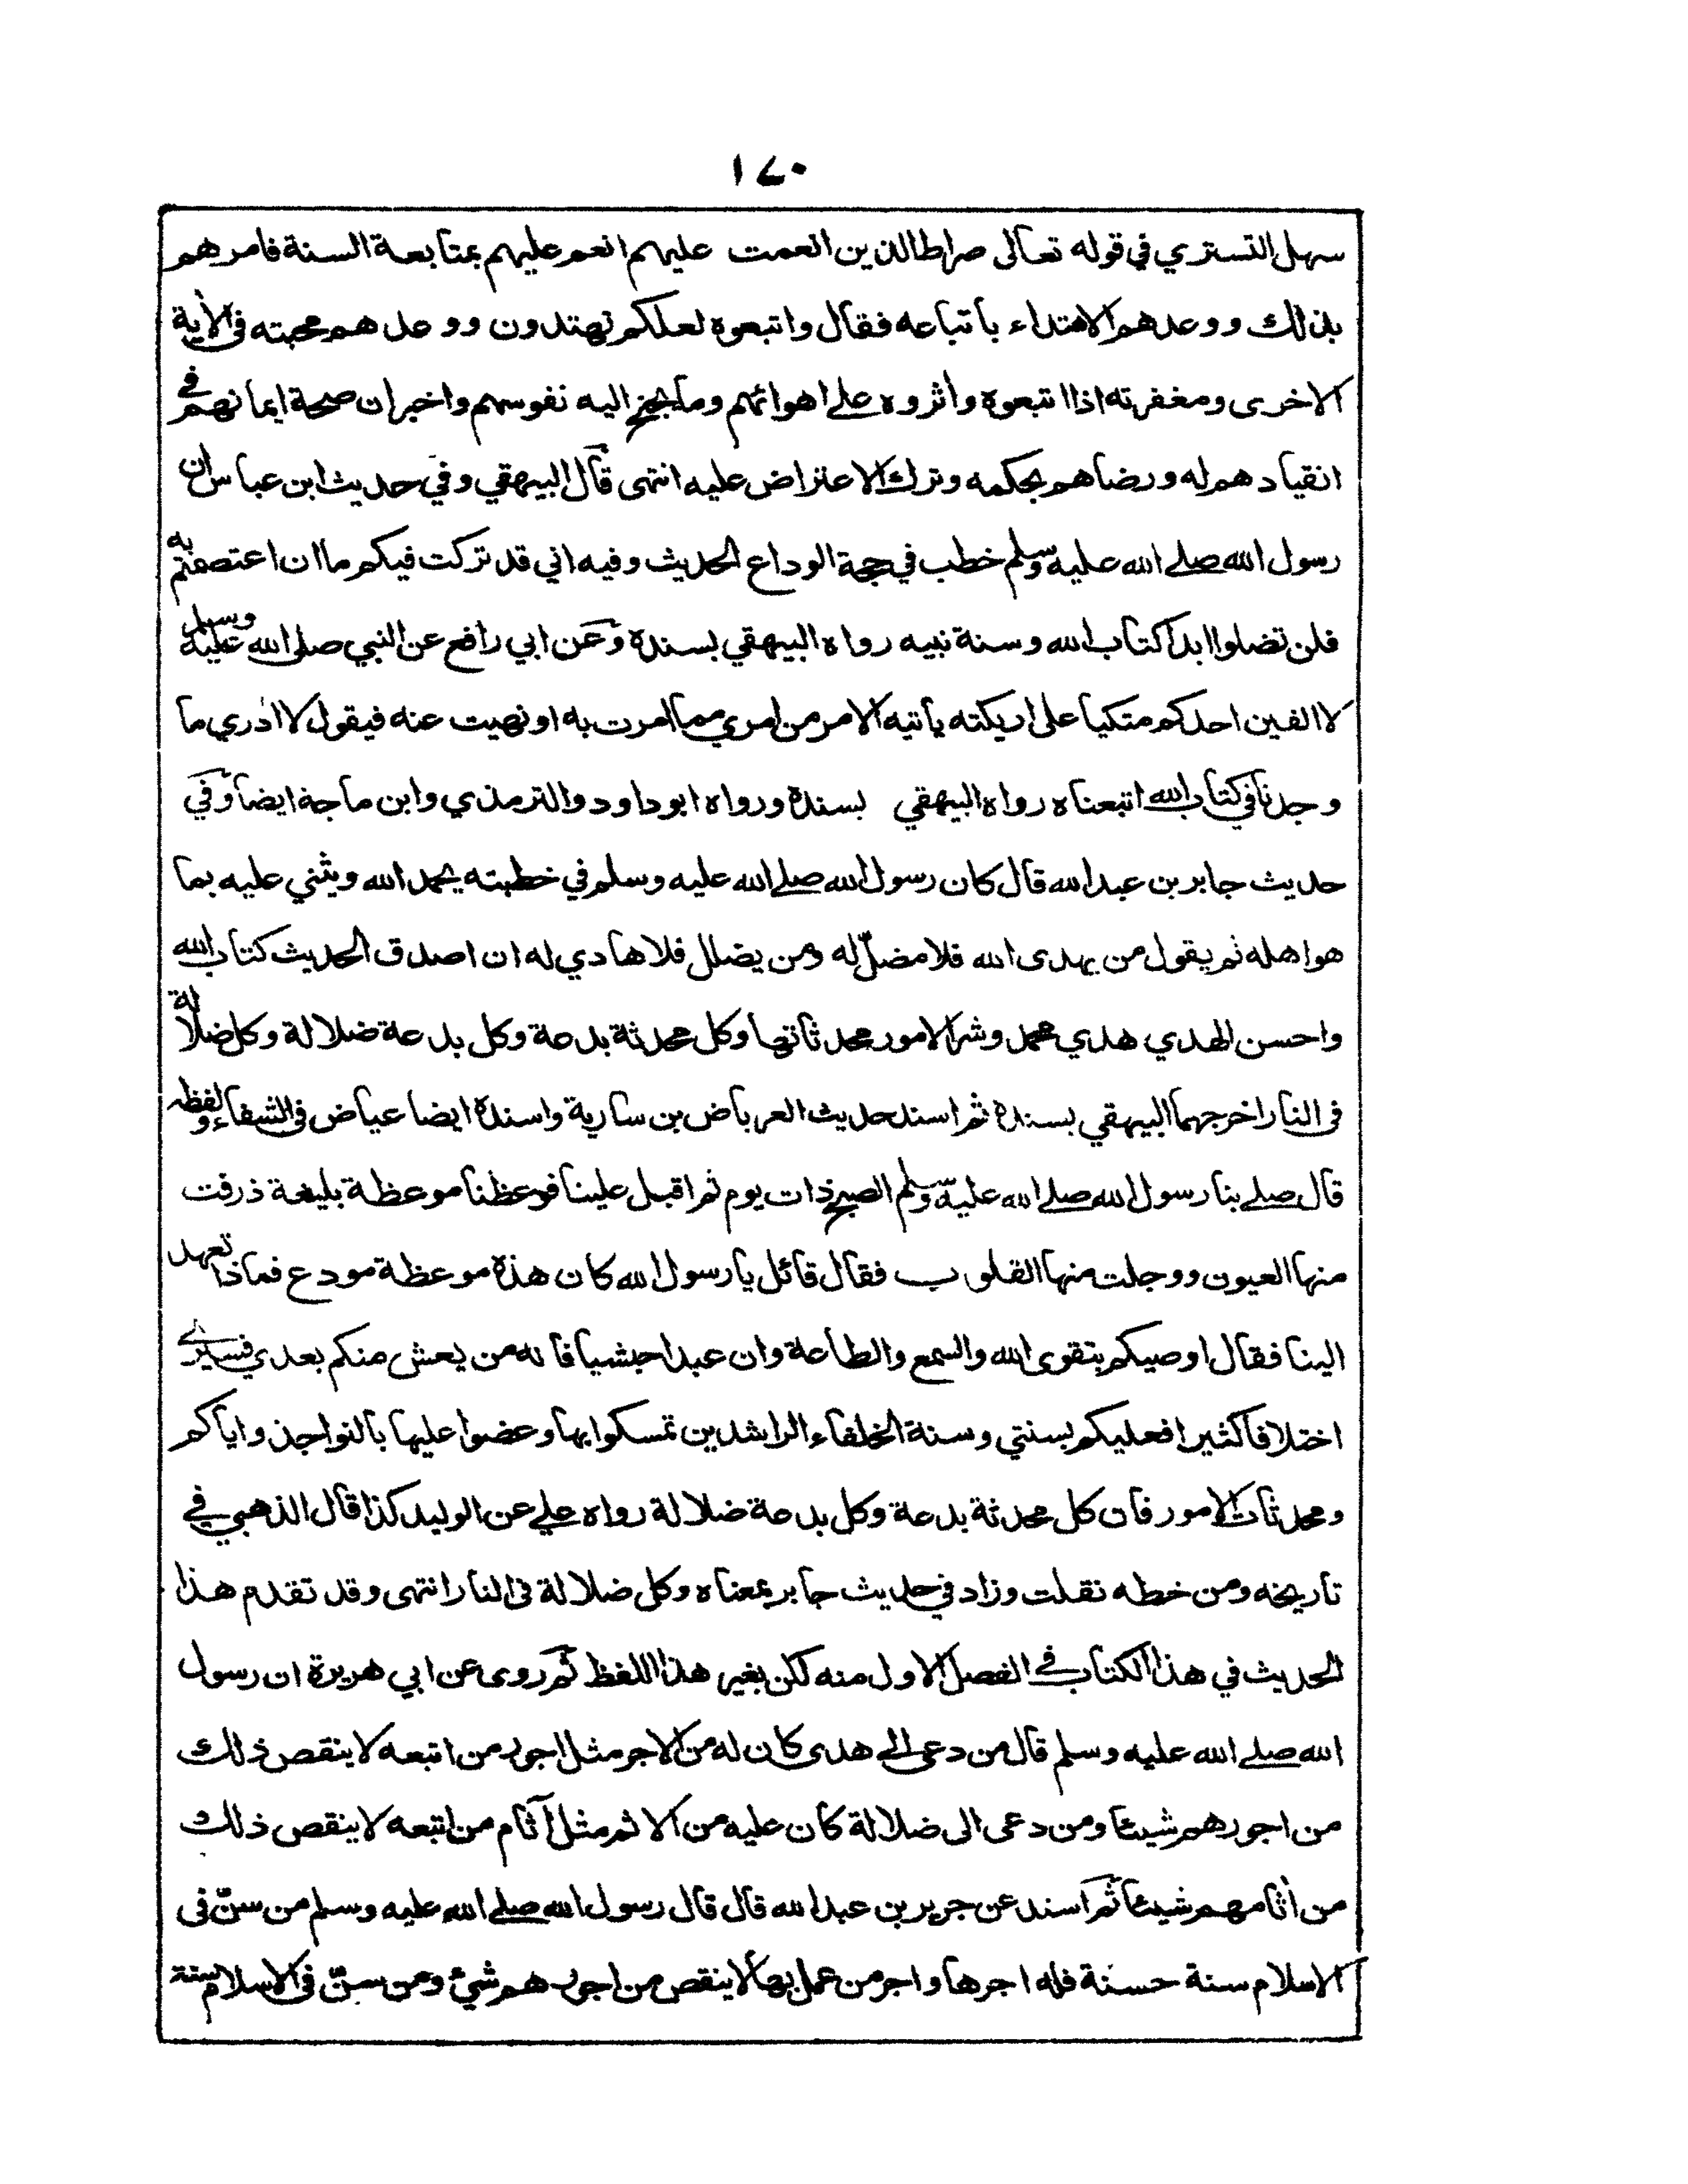 ١٧٠
سهل التستري في قوله تعالى صراط الذين انعمت عليهم انعم عليهم بمتابعة السنة فامرهم
بذلك ووعدهم الاهتداء باتباعه فقال واتبعوه لعلكم تهتدون ووعدهم محبته في الأية
الاخرى ومغفرته اذا اتبعوه وأثروه علے اهوائهم وما يجنح اليه نفوسهم واخبر ان صحة ايمانهم في
انقيادهم له ورضاهم بحكمه وترك الاعتراض عليه انتهى قال البيهقي وفي حديث ابن عباس ان
رسول الله صلے الله عليه وسلم خطب في حجة الوداع الحديث وفيه اني قد تركت فيكم ما ان اعتصمتم به
فلن تضلوا ابدا كتاب الله وسنة نبيه رواه البيهقي بسنده وعن ابي رافع عن النبي صلى الله عليه وسلم
لا الفين احدكم متكيا على اريكته يأتيه الامر من امري مما امرت به او نهيت عنه فيقول لا ادري ما
وجدنا في كتاب الله اتبعناه رواه البيهقي بسنده ورواه ابو داود والترمذي وابن ماجة ايضا وفي
حديث جابر بن عبد الله قال كان رسول الله صلے الله عليه وسلم في خطبته يحمد الله ويثني عليه بما
هو اهله ثم يقول من يهدى الله فلا مضلّ له ومن يضلل فلا هادي له ان اصدق الحديث كتاب الله
واحسن الهدي هدي محمد وشر الامور محدثاتها وكل محدثة بدعة وكل بدعة ضلالة وكل ضلالة
فى النار اخرجهما البيهقي بسنده ثم اسند حديث العرباض بن سارية واسنده ايضا عياض فى الشفاء ولفظه
قال صلے بنا رسول الله صلے الله عليه وسلم الصبح ذات يوم ثم اقبل علينا فوعظنا موعظة بليغة ذرفت
منها العيون ووجلت منها القلوب فقال قائل يا رسول الله كان هذه موعظة مودع فماذا تعهد
الينا فقال اوصيكم بتقوى الله والسمع والطاعة وان عبدا حبشيا فانه من يعش منكم بعدي فسيرے
اختلافا كثيرا فعليكم بسنتي وسنة الخلفاء الراشدين تمسكوا بها وعضوا عليها بالنواجذ واياكم
ومحدثات الامور فان كل محدثة بدعة وكل بدعة ضلالة رواه علے عن الوليد كذا قال الذهبي في
تاريخه ومن خطه نقلت وزاد في حديث جابر بمعناه وكل ضلالة فى النار انتهى وقد تقدم هذا
الحديث في هذا الكتاب في الفصل الاول منه لكن بغير هذا اللفظ ثم روى عن ابي هريرة ان رسول
الله صلے الله عليه وسلم قال من دعى الے هدى كان له من الاجر مثل اجور من اتبعه لا ينقص ذلك
من اجورهم شيئا ومن دعى الى ضلالة كان عليه من الاثم مثل آثام من اتبعه لا ينقص ذلك
من أثامهم شيئا ثم اسند عن جرير بن عبد الله قال قال رسول الله صلے الله عليه وسلم من سنّ فى
الاسلام سنة حسنة فله اجرها واجر من عمل بها لا ينقص من اجورهم شيئ ومن سنّ فى الاسلام سنة